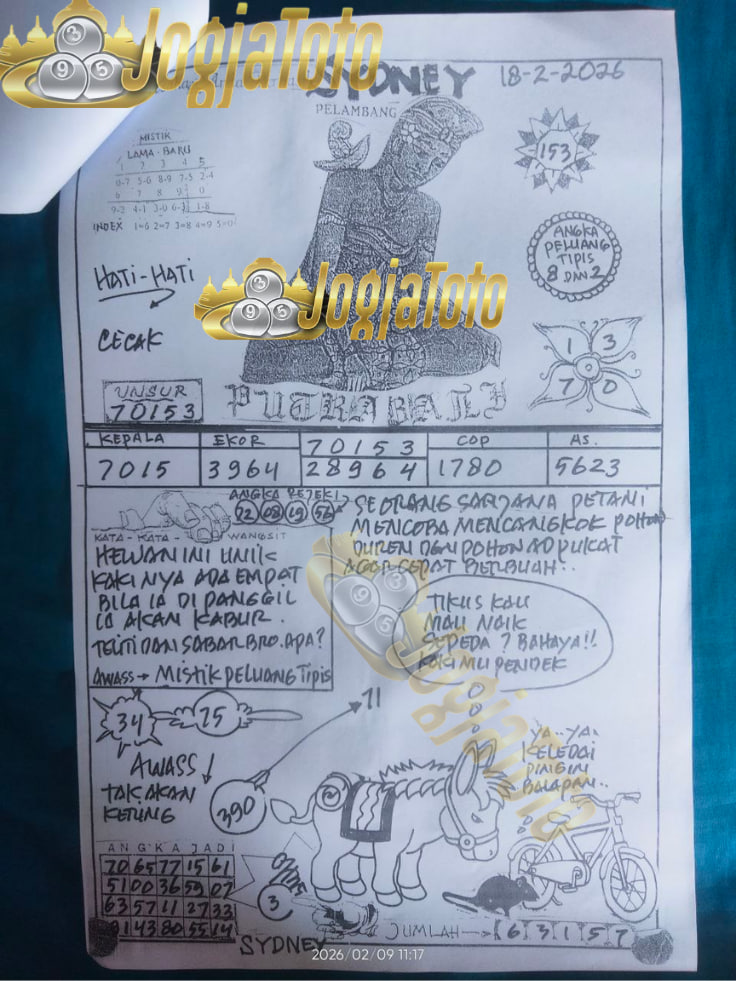 JogjaToto
SYDNEY 18-2-2026
PELAMBANG
MISTIK
LAMA - BARU
1 2 3 4 5
0-7 5-6 8-9 7-5 2-4
6 7 8 9 0
INDEX 1=6 2=7 3=8 4=9 5=0
153
ANGKA
PELUANG
TIPIS
8 DAN 2
HATI-HATI
JogjaToto
CECAK
1 3
7 0
UNSUR
70153
PUTRA BALI
KEPALA EKOR 70153 COP AS.
7015 3964 28964 1780 5623
ANGKA REJEKI
22 08 19 56
KATA - KATA - WANGSIT
HEWAN INI UNIK
KAKI NYA ADA EMPAT
BILA IA DI PANGGIL
IA AKAN KABUR.
TELITI DAN SABAR BRO. APA?
AWASS → MISTIK PELUANG TIPIS
SEORANG SARJANA PETANI
MENCOBA MENCANGKOK POHON
DUREN DGN POHON ADPUKAT
AGAR CEPAT BERBUAH..
TIKUS KAU
MAU NAIK
SEPEDA ? BAHAYA!!
KAKI MU PENDEK
34 75
71
AWASS
TAK AKAN
KETUNG
390
YA..YA.
KELEDAI
PINGIN
BALAPAN..
ANGKA JADI
70 65 77 15 61
51 00 36 59 07
63 57 11 27 33
91 43 80 55 14
3
JUMLAH → 6 3 1 5 7
SYDNEY
2026/02/09 11:17
JogjaToto